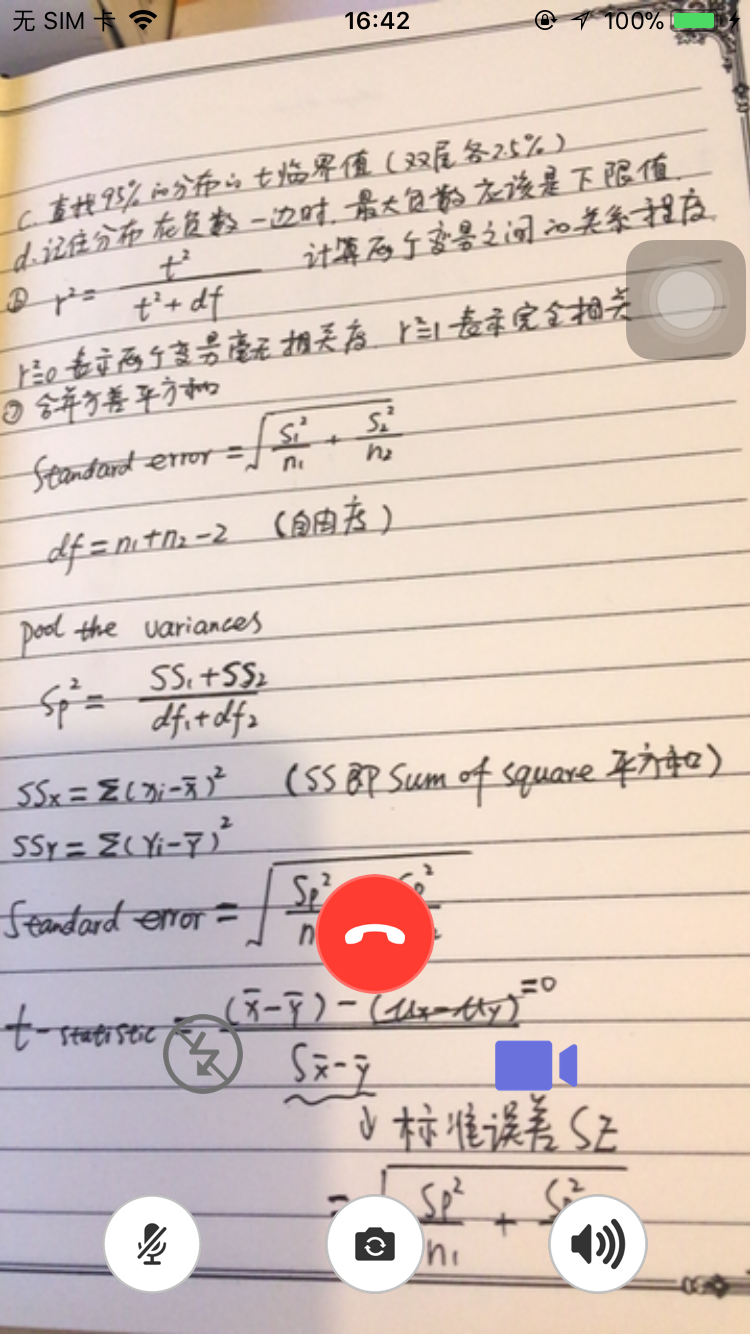 无 SIM 卡 16:42 100%
c. 查找95%的分布的t临界值（双尾各2.5%）
d. 记住分布在负数一边时,最大负数应该是下限值.
⑥ r²= t²/(t²+df) 计算两个变量之间的关系程度
r²=0表示两个变量毫无相关度. r²=1表示完全相关
⑦ 合并方差平方和
Standard error = √(S₁²/n₁ + S₂²/n₂)
df = n₁+n₂-2 （自由度）
pool the variances
Sp² = (SS₁+SS₂)/(df₁+df₂)
SSx = Σ(xi-x̄)² （SS即Sum of square 平方和）
SSY = Σ(Yi-Ȳ)²
Standard error = √(Sp²/n
t-statistic = ((x̄-ȳ) - (μx-μy)=0)/Sx̄-ȳ
↓ 标准误差 SE
= √(Sp²/n₁ +